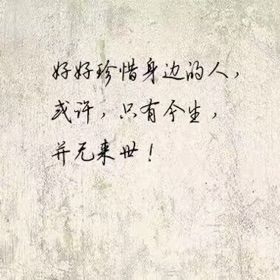 好好珍惜身边的人，
或许，只有今生，
并无来世！